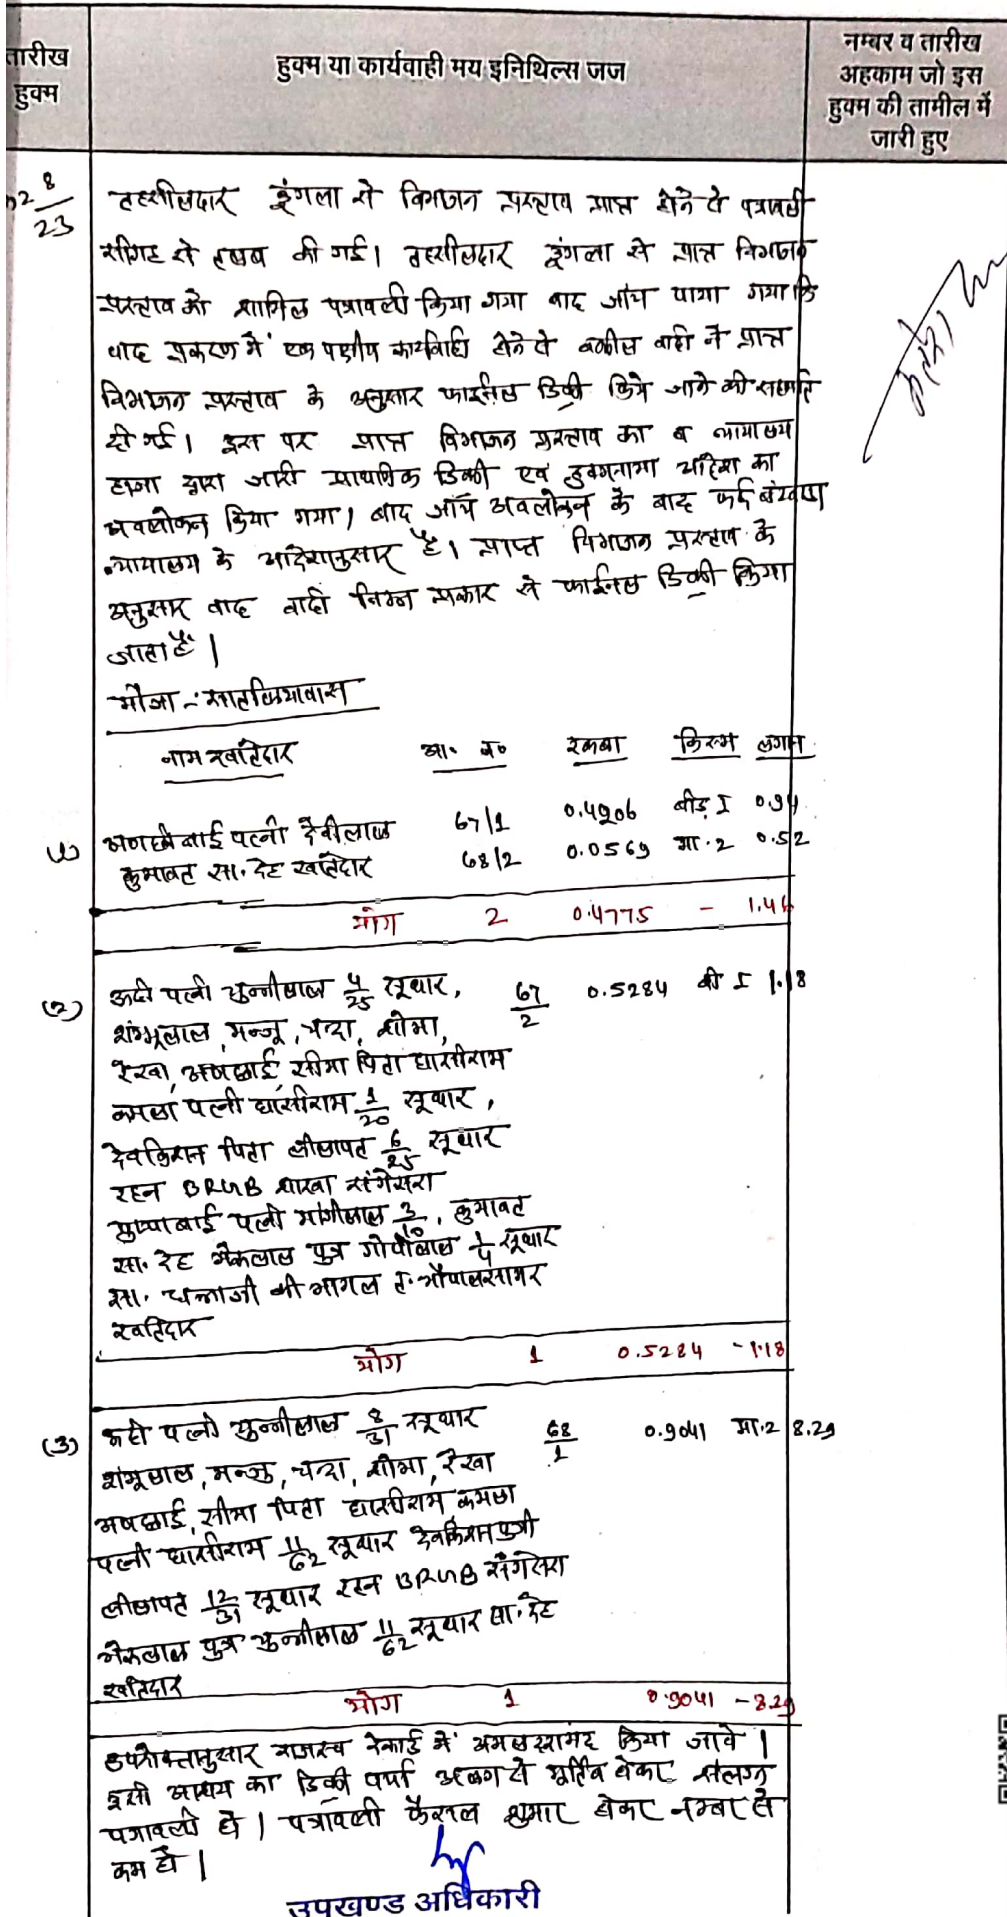 तारीख
हुक्म
हुक्म या कार्यवाही मय इनिथिल्स जज
नम्बर व तारीख
अहकाम जो इस
हुक्म की तामील में
जारी हुए
8
23
तहसीलदार डूंगला से विभाजन प्रस्ताव प्राप्त होने से पत्रावली
सीगह से तलब की गई। तहसीलदार डूंगला से प्राप्त विभाजन
प्रस्ताव को शामिल पत्रावली किया गया बाद जांच पाया गया कि
वाद प्रकरण में एक पक्षीय कार्यवाही होने से वकील वादी ने प्राप्त
विभाजन प्रस्ताव के अनुसार फाईनल डिक्री किये जाने की सहमति
दी गई। इस पर प्राप्त विभाजन प्रस्ताव का व न्यायालय
हाजा द्वारा जारी प्राथमिक डिक्री एवं हुक्मनामा आदेश का
अवलोकन किया गया। बाद जाँच अवलोकन के बाद
न्यायालय के आदेशानुसार है। प्राप्त विभाजन प्रस्ताव के
अनुसार वाद वादी निम्न प्रकार से फाईनल डिक्री किया
जाता है।
मौजा :-
नाम खातेदार आ. न. रकबा किस्म लगान
(1) पत्नी देवीलाल 67/1 0.4206 बीड़ I 0.94
कुमावत सा. देह खातेदार 68/2 0.0569 मा.2 0.52
योग 2 0.4775 - 1.46
(2) पत्नी चुन्नीलाल 4/25 सूथार, 67/2 0.5284 बी I 1.18
शम्भूलाल, मन्जू, चन्दा, शोभा,
रेखा, अणछाई, सीमा पिता घासीराम
कमला पत्नी घासीराम 1/20 सूथार,
देवकिशन पिता लीलापत 6/25 सूथार
रहन BRGB शाखा संगेसरा
पुष्पाबाई पत्नी मांगीलाल 3/10, कुमावत
सा. देह भैरूलाल पुत्र गोपीलाल 1/4 सूथार
सा. की भागल त. भोपालसागर
खातेदार
योग 1 0.5284 - 1.18
(3) पत्नी चुन्नीलाल 8/31 सूथार 68/1 0.9041 मा.2 8.29
शंभूलाल, मन्जु, चन्दा, शोभा, रेखा
अणछाई, सीमा पिता घासीराम, कमला
पत्नी घासीराम 11/62 सूथार देवकिशन
लीलापत 12/31 सूथार रहन BRGB संगेसरा
भैरूलाल पुत्र चुन्नीलाल 11/62 सूथार सा. देह
खातेदार
योग 1 0.9041 - 8.29
उपरोक्तानुसार राजस्व रेकार्ड में अमलदरामद किया जावे।
इसी आशय का डिक्री पर्चा अलग से मूर्तिब होकर संलग्न
पत्रावली हो। पत्रावली फैसल शुमार होकर नम्बर से
कम हो।
उपखण्ड अधिकारी